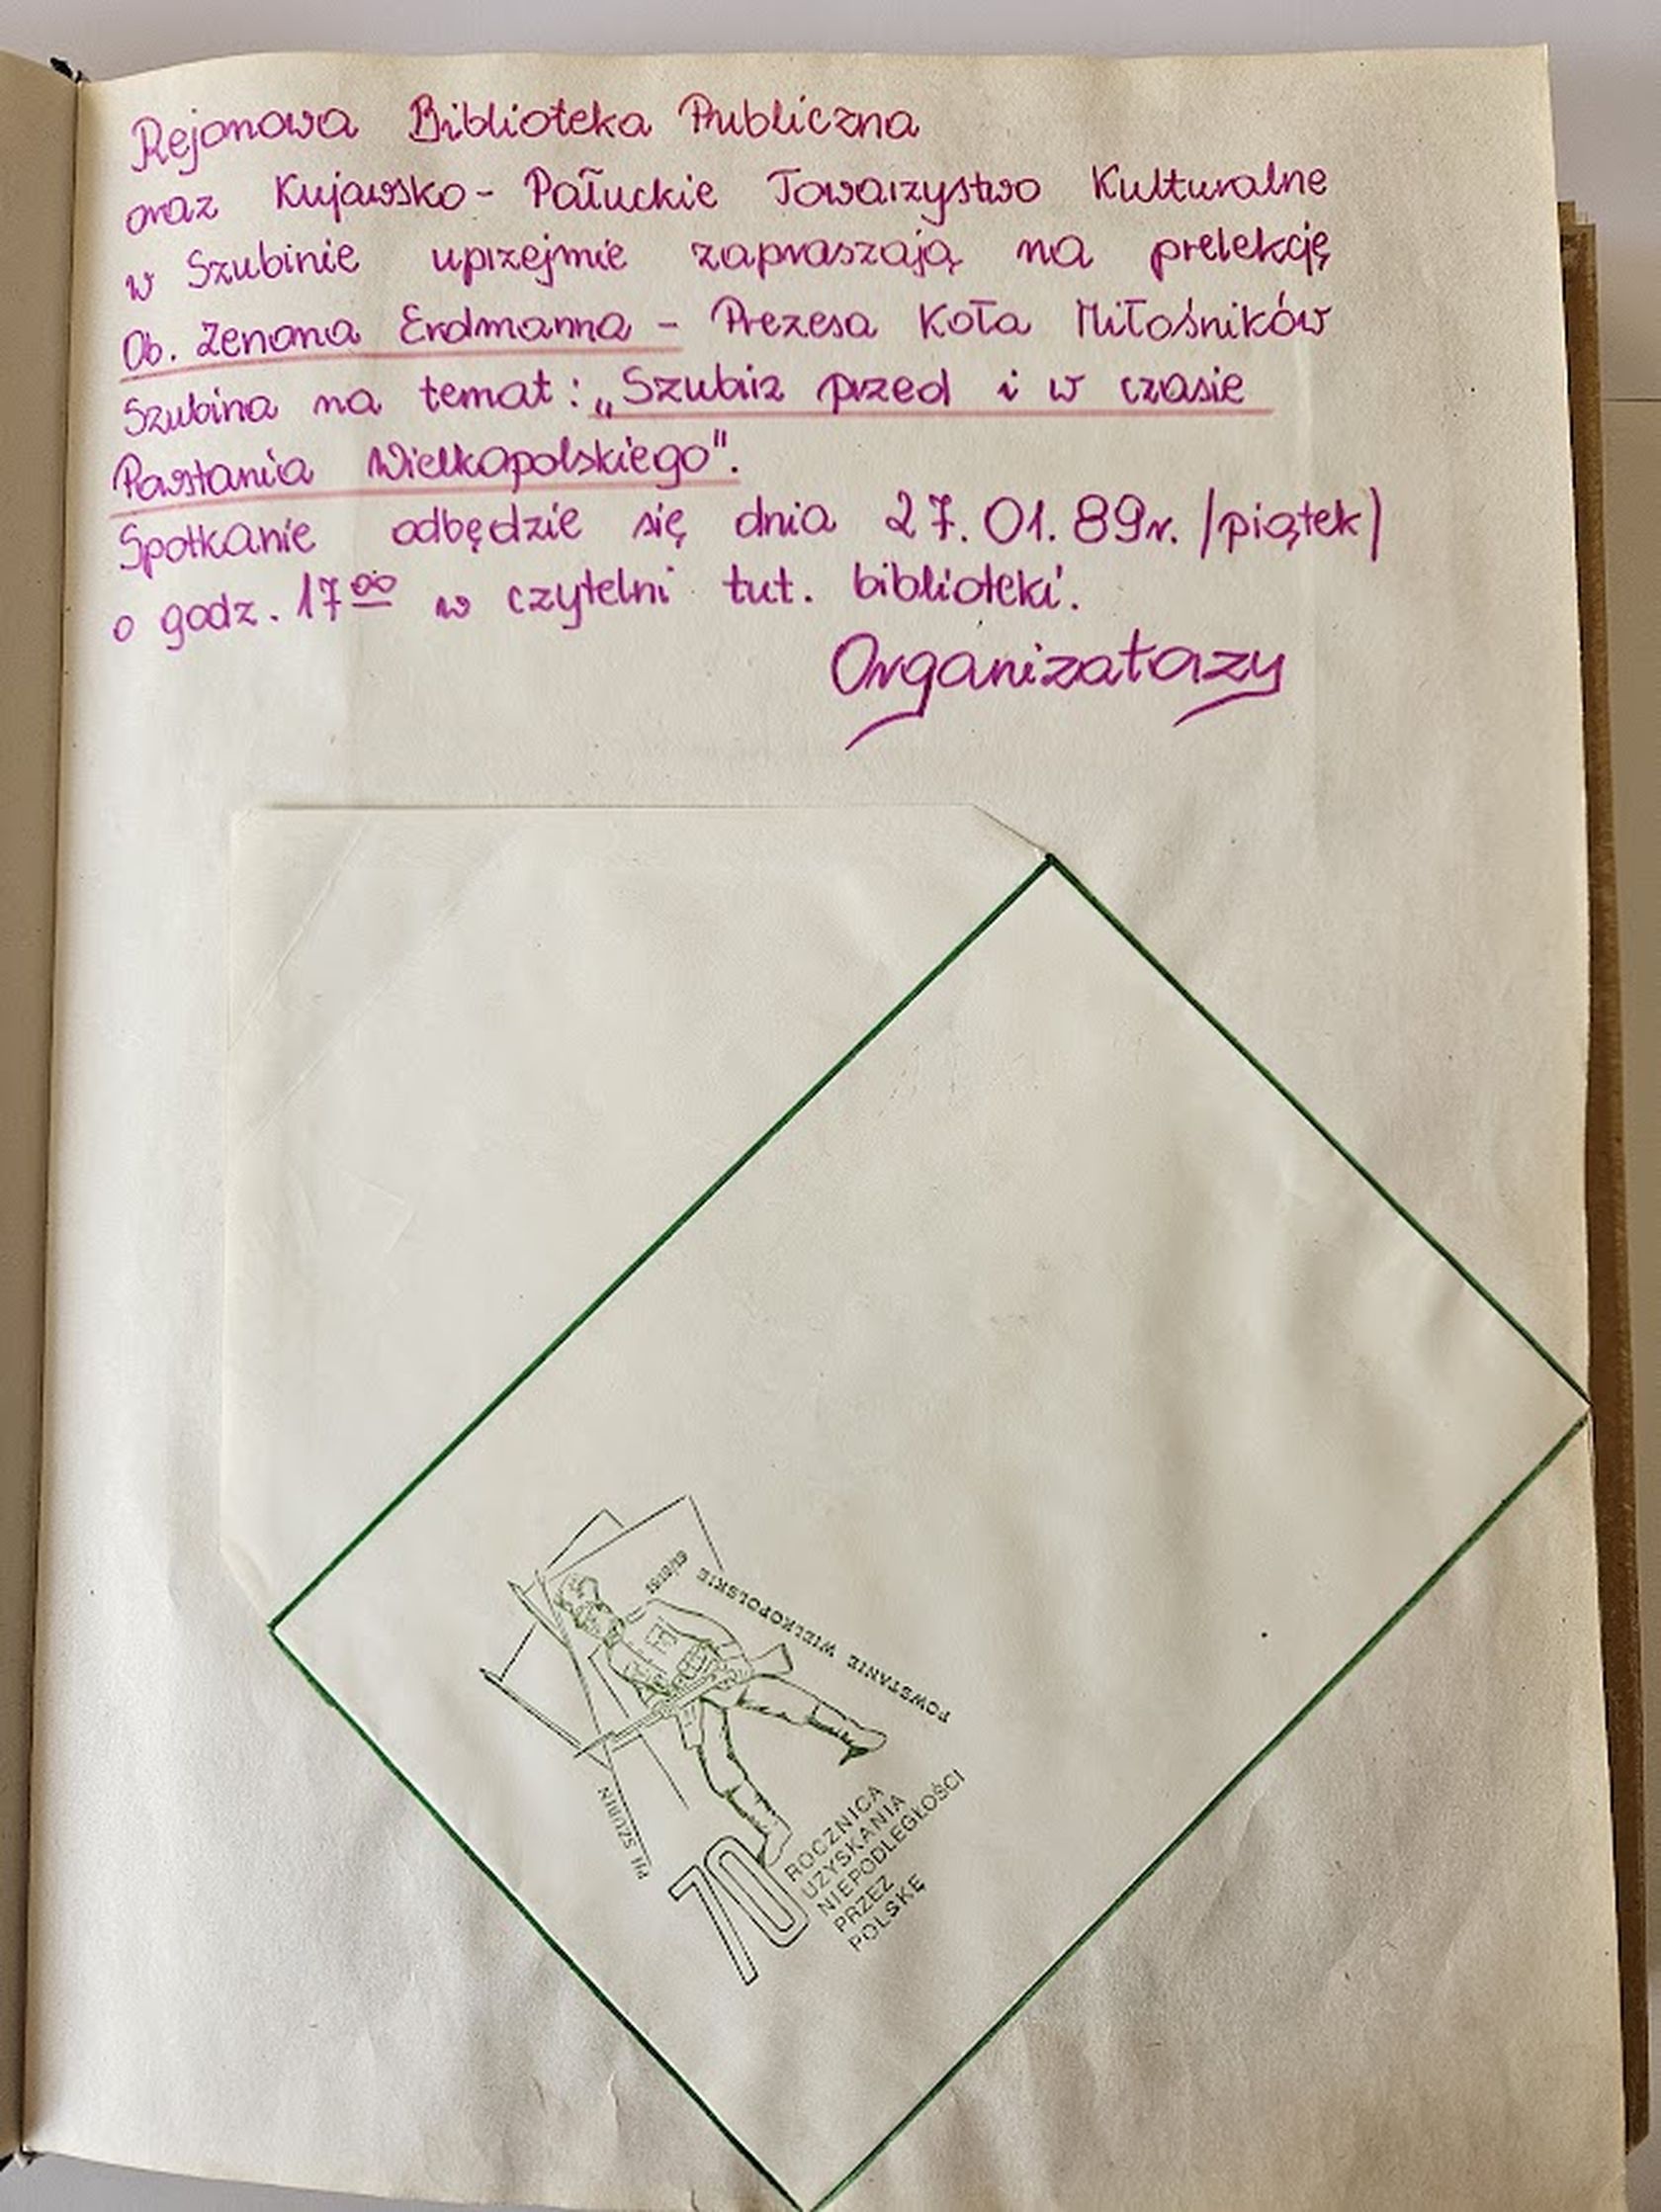 Rejonowa Biblioteka Publiczna
oraz Kujawsko-Pałuckie Towarzystwo Kulturalne
w Szubinie uprzejmie zapraszają na prelekcję
Ob. Zenona Erdmanna - Prezesa Koła Miłośników
Szubina na temat: „Szubin przed i w czasie
Powstania Wielkopolskiego".
Spotkanie odbędzie się dnia 27.01.89r. /piątek/
o godz. 17 00 w czytelni tut. biblioteki.
Organizatorzy
1918/19
POWSTANIE WIELKOPOLSKIE
PIL SZUBIN
70
ROCZNICA
UZYSKANIA
NIEPODLEGŁOŚCI
PRZEZ
POLSKĘ